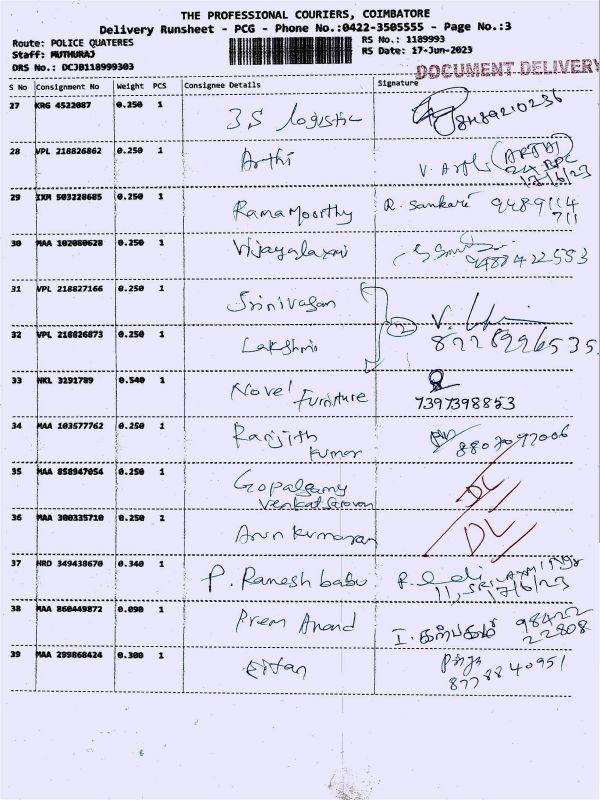 THE PROFESSIONAL COURIERS, COIMBATORE
Delivery Runsheet - PCG - Phone No.:0422-3505555 - Page No.:3
Route: POLICE QUATERES
RS No.: 1189993
Staff: MUTHURAJ
RS Date: 17-Jun-2023
DRS No.: DCJB118999303
DOCUMENT DELIVERY
S No Consignment No Weight PCS Consignee Details Signature
27 KRG 4522087 0.250 1 3S logistic 8489210236
28 VPL 218826862 0.250 1 Arthi V. Arthi (ARTHI)
17/6/23
29 IXM 503228685 0.250 1 Ramamoorthy R. Sankari 9489114
711
30 MAA 102080628 0.250 1 Vijayalaxmi
31 VPL 218827166 0.250 1 Srinivasan
2
32 VPL 218826873 0.250 1 Lakshmi 8228926535
33 NKL 3291789 0.540 1 Novel Furniture 7397398853
34 MAA 103577762 0.250 1 Ranjith
kumar 8807092006
35 MAA 858947054 0.250 1 Gopalsamy
Venkat Saravan DL
36 MAA 300335710 0.250 1 Arun Kumaran DL
37 HRD 349438670 0.340 1 P. Ramesh babu
17/6/23
38 MAA 860449872 0.090 1 Prem Anand I. கற்பகம் 98422
22808
39 MAA 299868424 0.300 1 8778840951